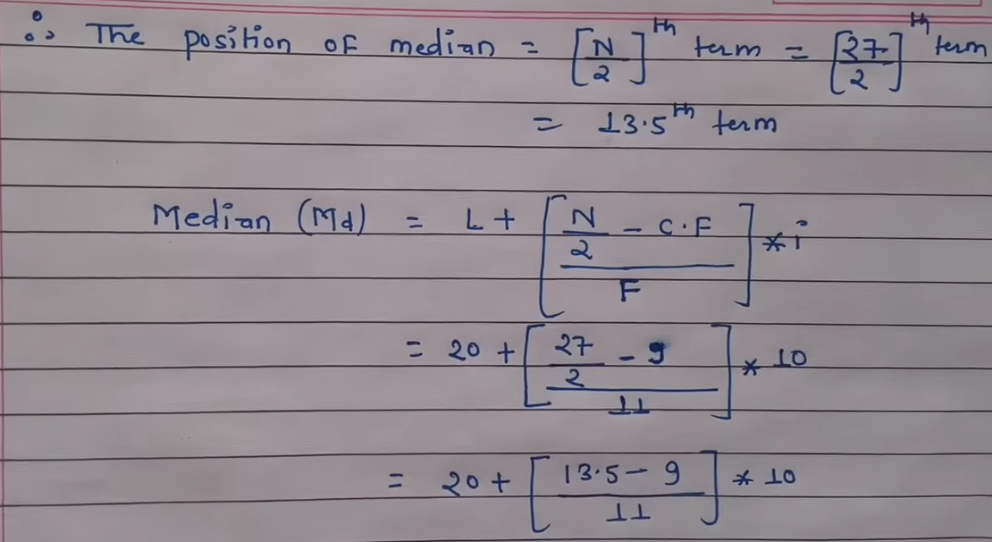 ∴ The position of median = [N/2]th term = [27/2]th term
= 13.5th term
Median (Md) = L + [(N/2 - C.F)/F] * i
= 20 + [(27/2 - 9)/11] * 10
= 20 + [(13.5 - 9)/11] * 10